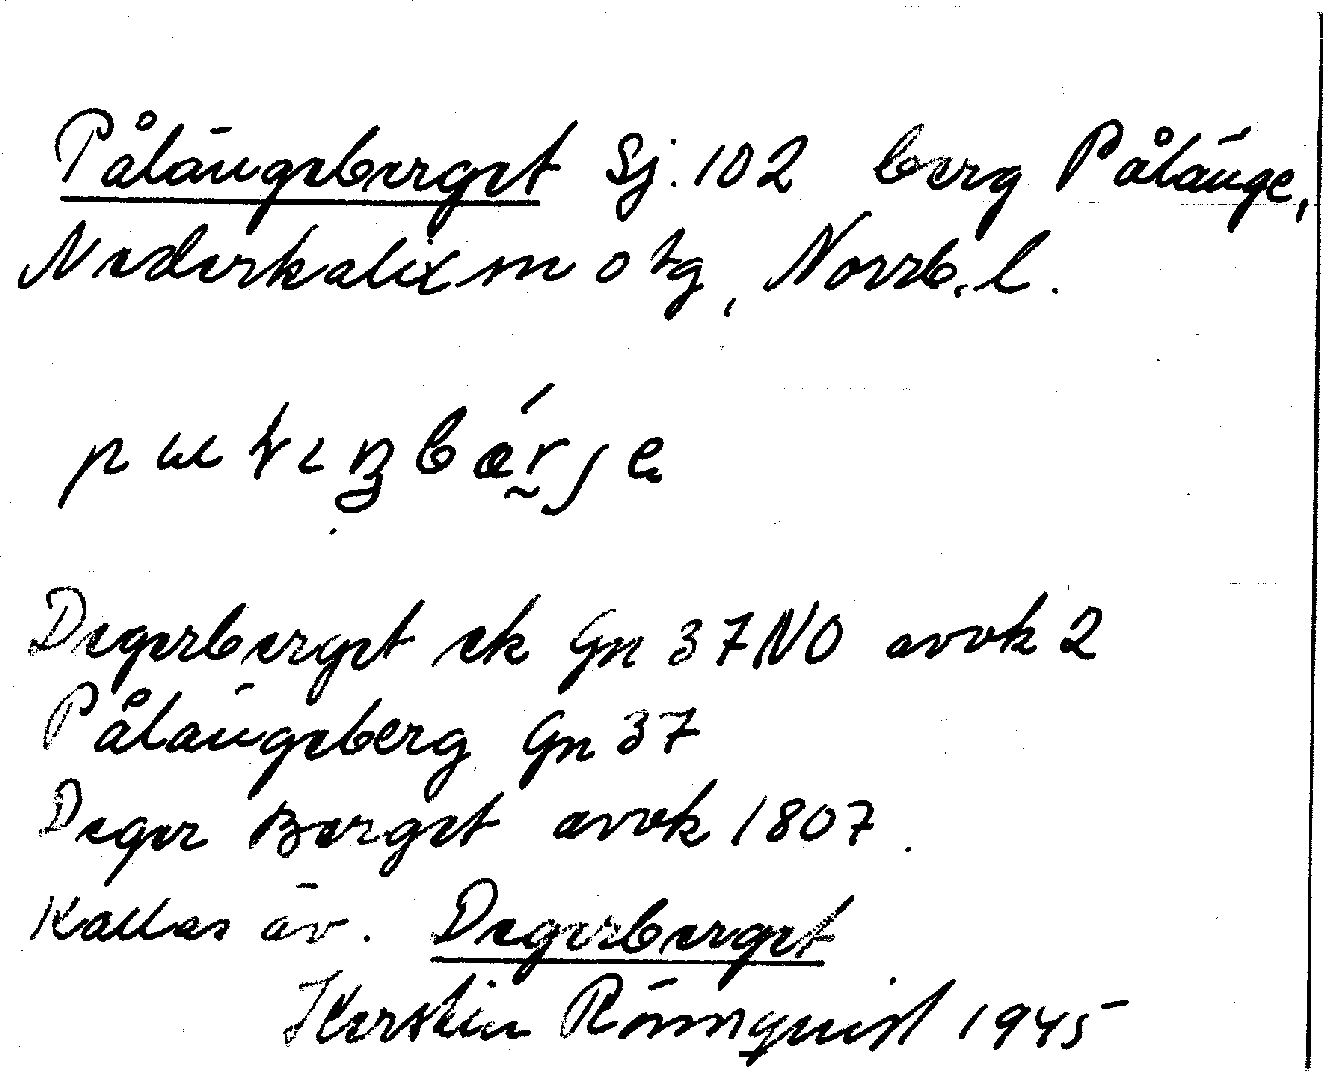 Pålängeberget Sj. 102 berg Pålänge,
Nederkalix sn o tg, Norrb. l.
Degerberget ek Gn 37 NO avvk 2
Pålängeberg Gn 37
Deger Berget avvk 1807.
Kallas äv. Degerberget
Kerstin Rönnquist 1945